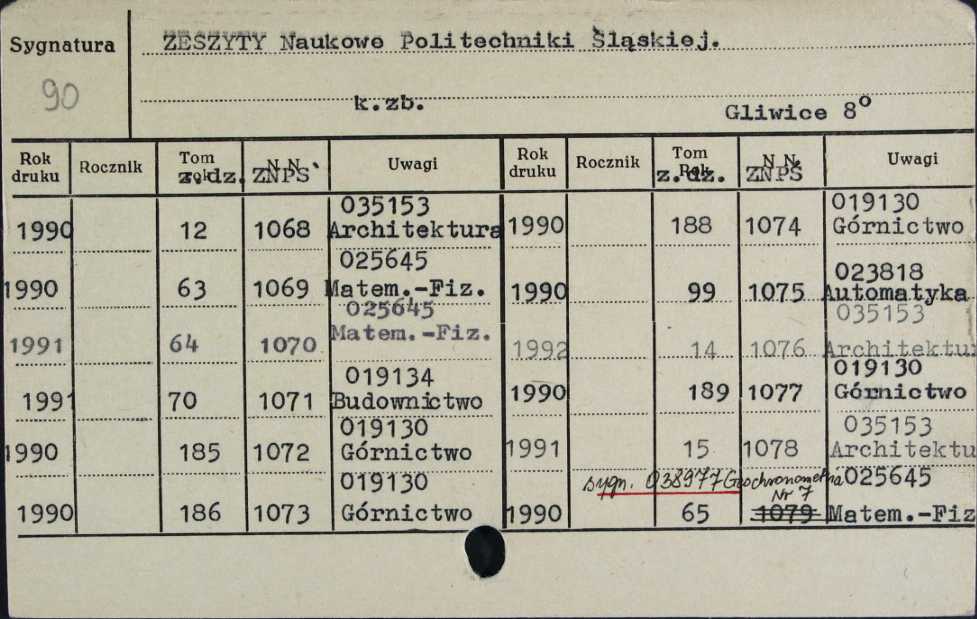 Sygnatura
90
ZESZYTY Naukowe Politechniki Śląskiej.
k.zb.
Gliwice 8º
Rok druku Rocznik Tom z.dz. N.N. ZNPS Uwagi
035153
1990 12 1068 Architektura
025645
1990 63 1069 Matem.-Fiz.
025645
1991 64 1070 Matem.-Fiz.
019134
1991 70 1071 Budownictwo
019130
1990 185 1072 Górnictwo
019130
1990 186 1073 Górnictwo
Rok druku Rocznik Tom Rok z.dz. N.N. ZNPŚ Uwagi
019130
1990 188 1074 Górnictwo
023818
1990 99 1075 Automatyka
035153
1992 14 1076 Architektur
019130
1990 189 1077 Górnictwo
035153
1991 15 1078 Architektu
sygn. 038977 Geochronometria 025645
Nr 7
1990 65 1079 Matem.-Fiz